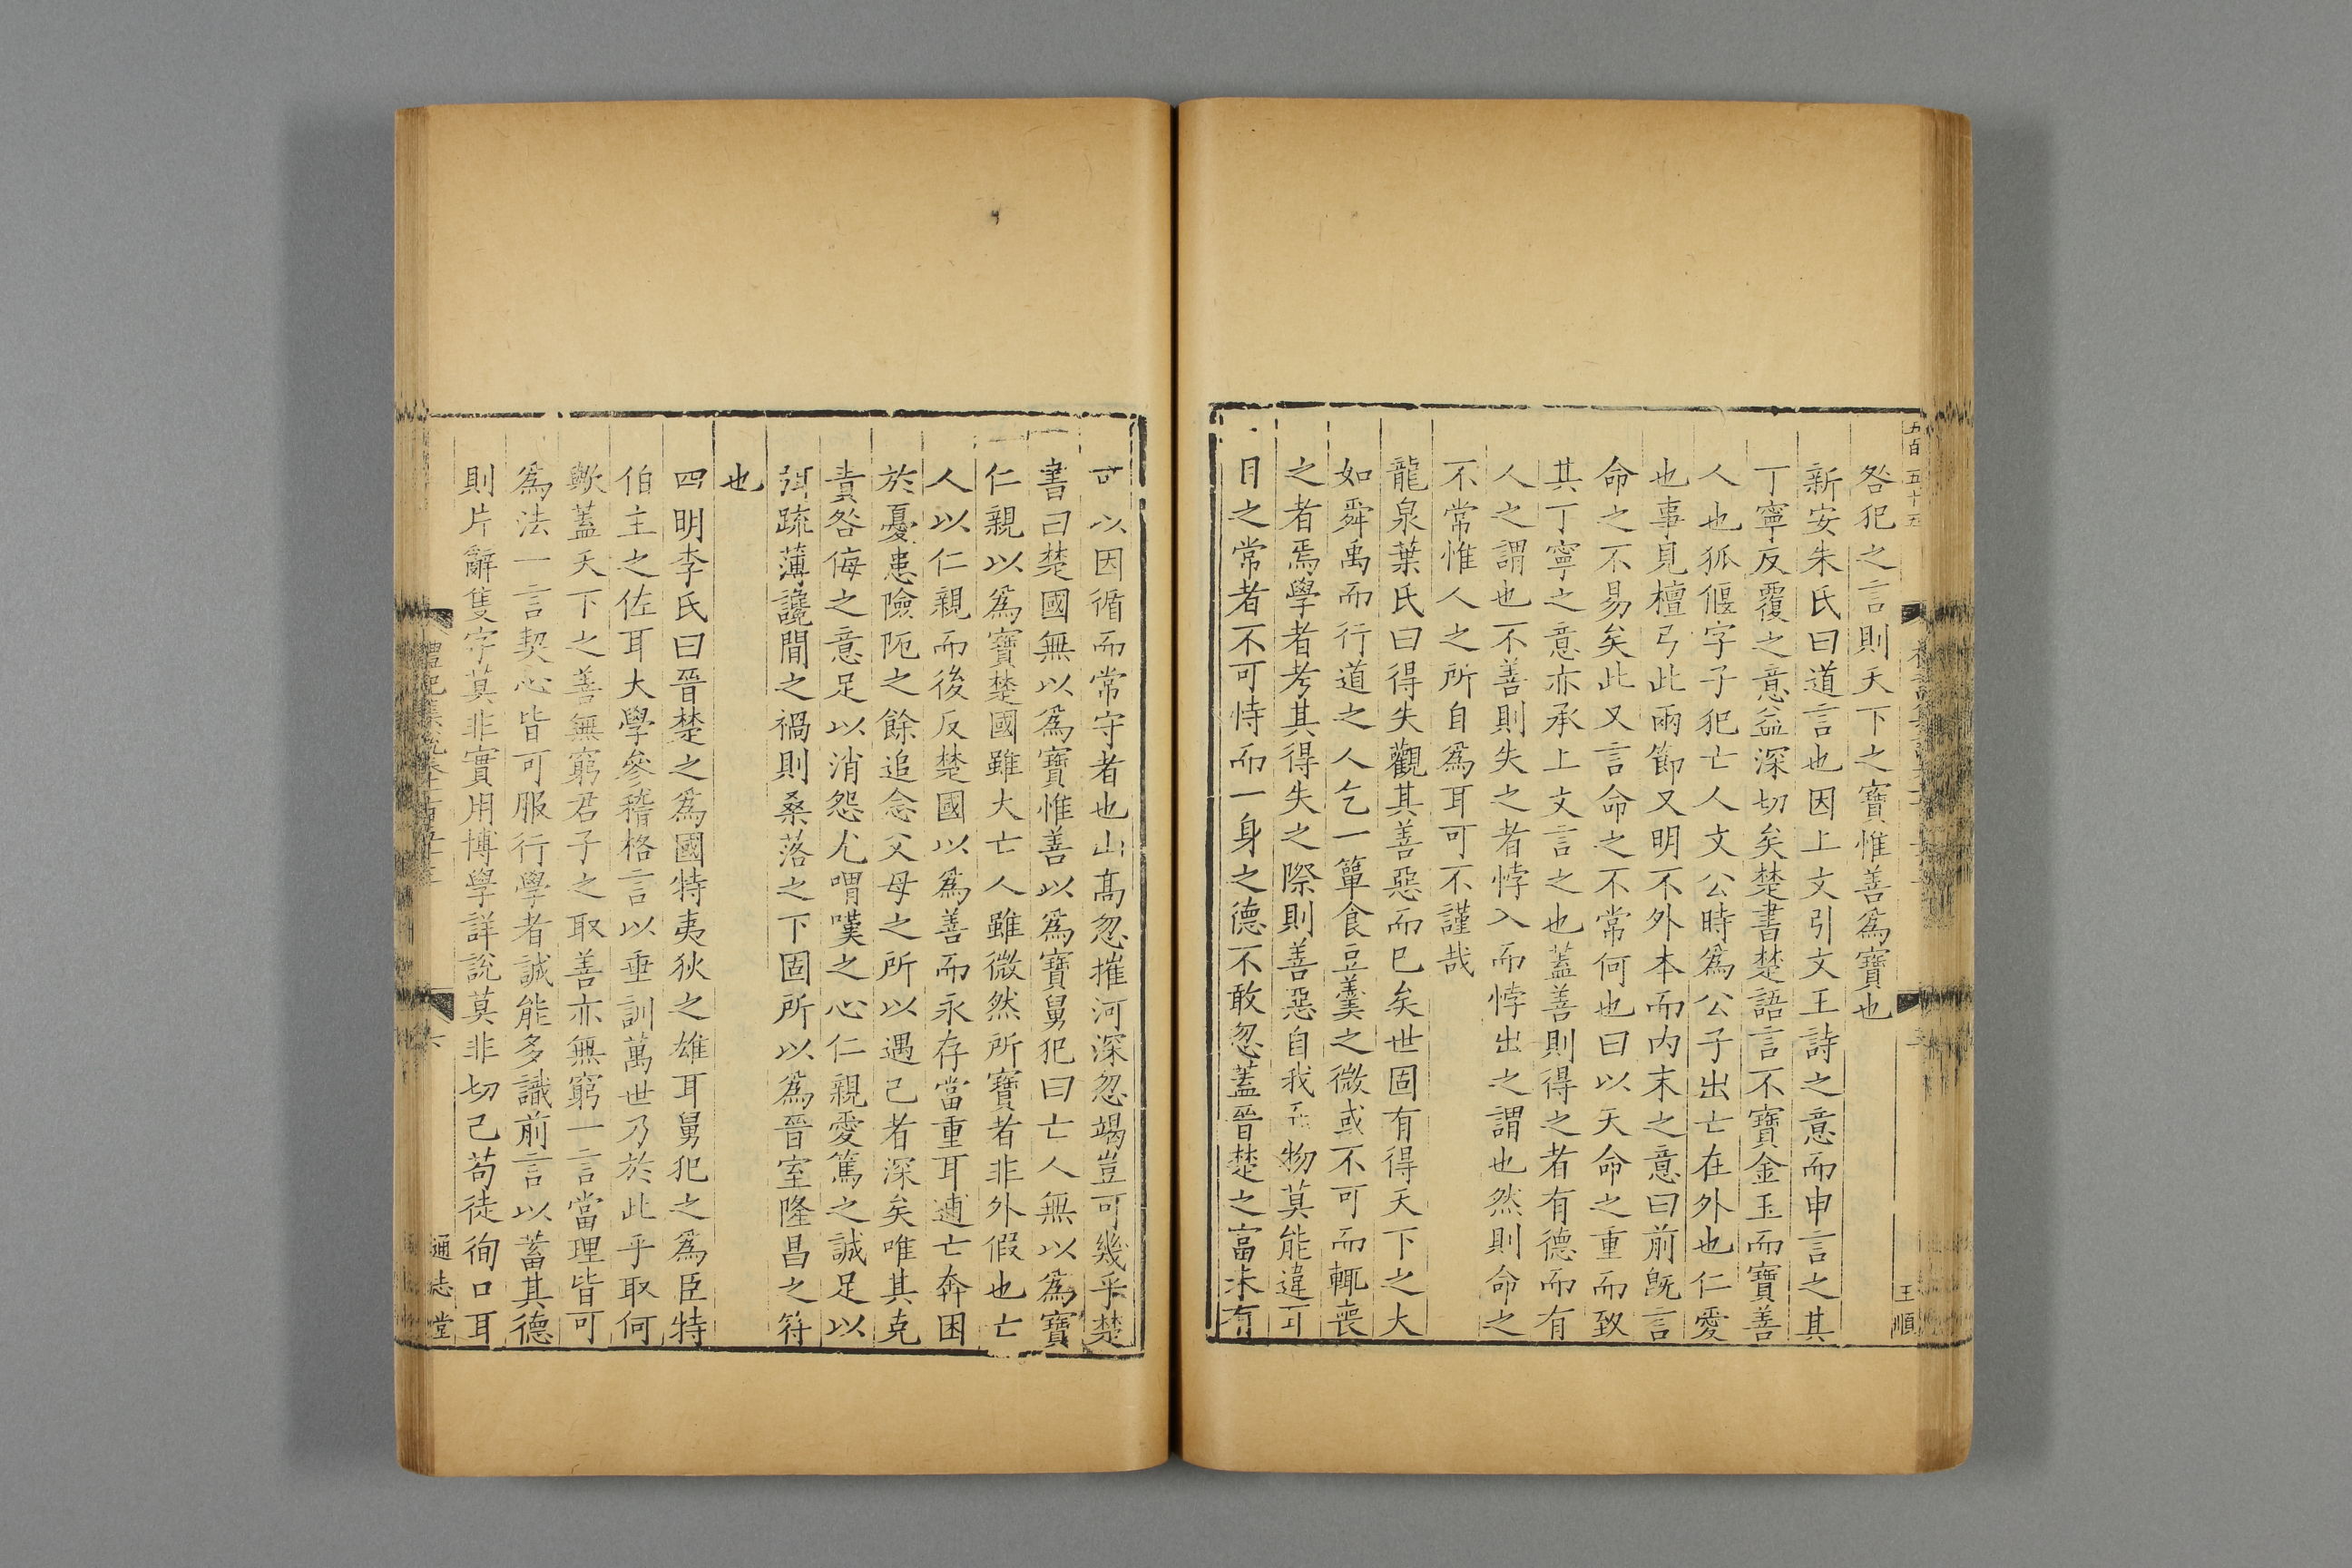 五百五十五
王順
咎犯之言則天下之寶惟善爲寶也
新安朱氏曰道言也因上文引文王詩之意而申言之其
丁寧反覆之意益深切矣楚書楚語言不寶金玉而寶善
人也狐偃字子犯亡人文公時爲公子出亡在外也仁愛
也事見檀弓此兩節又明不外本而内末之意曰前旣言
命之不易矣此又言命之不常何也曰以天命之重而致
其丁寧之意亦承上文言之也蓋善則得之者有德而有
人之謂也不善則失之者悖入而悖出之謂也然則命之
不常惟人之所自爲耳可不謹哉
龍泉葉氏曰得失觀其善惡而已矣世固有得天下之大
如舜禹而行道之人乞一簞食豆羹之微或不可而輒喪
之者焉學者考其得失之際則善惡自我物莫能違可
日之常者不可恃而一身之德不敢忽蓋晉楚之富未有
可以因循而常守者也山高忽摧河深忽竭豈可幾乎楚
書曰楚國無以爲寶惟善以爲寶舅犯曰亡人無以爲寶
仁親以爲寶楚國雖大亡人雖微然所寶者非外假也亡
人以仁親而後反楚國以爲善而永存當重耳逋亡奔困
於憂患險阨之餘追念父母之所以遇己者深矣唯其克
責咎悔之意足以消怨尤喟嘆之心仁親愛篤之誠足以
弭疏薄讒間之禍則桑落之下固所以爲晉室隆昌之符
也
四明李氏曰晉楚之爲國特夷狄之雄耳舅犯之爲臣特
伯主之佐耳大學參稽格言以垂訓萬世乃於此乎取何
歟蓋天下之善無窮君子之取善亦無窮一言當理皆可
爲法一言契心皆可服行學者誠能多識前言以蓄其德
則片辭隻字莫非實用博學詳說莫非切己苟徒徇口耳
禮記集說卷一百五十三
六
通志堂